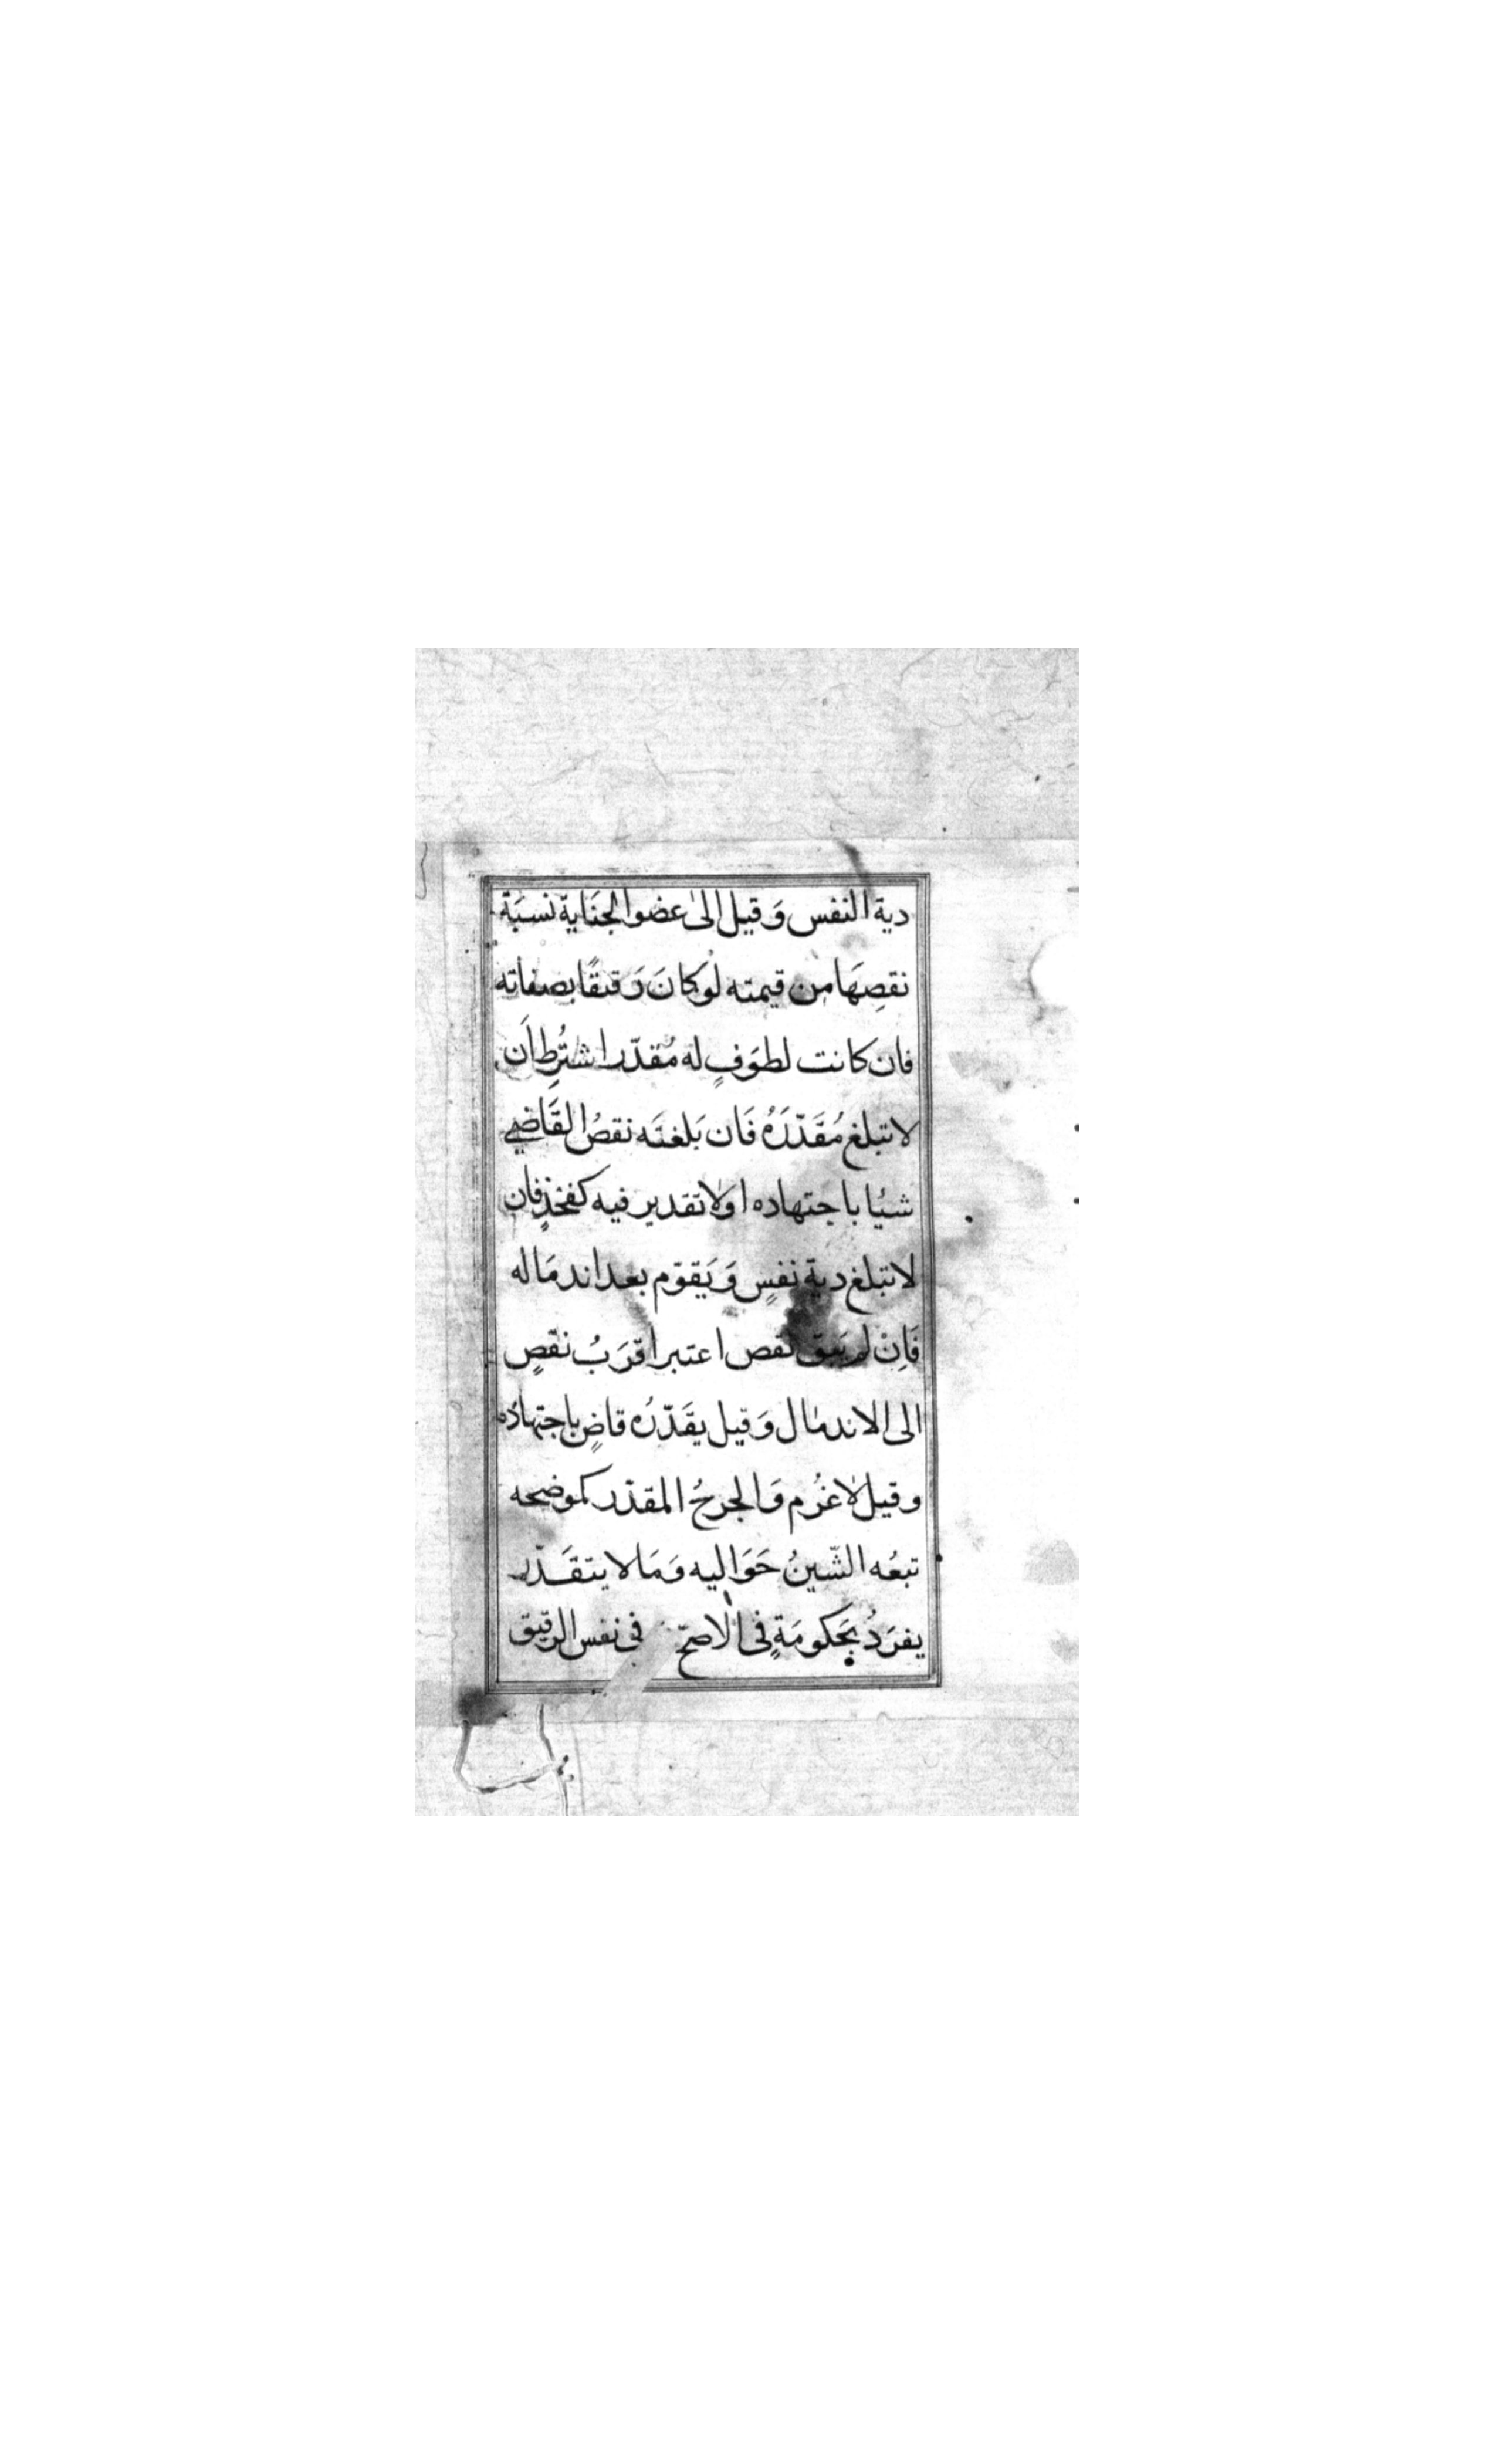 دية النفس وَقيل الىٰ عضو الجنَاية نسبَة
نقصِهَا من قيمته لو كانَ رَقيقًا بصفاته
فان كانت لطوَفٍ له مُقدّر اشتُرِط اَن
لا تبلغ مُقَدّرَهُ فَان بَلغته نقصُ القَاضي
شئا باجتهاده اولا تقدير فيه كفخذٍ فان
لا تبلغ دية نفسٍ وَيَقوّم بعد اندمَاله
فَاِنْ لم يَبق نقص اعتبر اقرَبُ نقصٍ
الى الاندمال وَقيل يقَدّرُه قاضٍ باجتهادُه
وقيل لا غُرم وَالجرحُ المقدّر كموضحه
تبعُه الشّينُ حَوَاليه وَمَا لا يتقَدّر
يفرَدُ بحَكومَةٍ فى الاصحّ فى نفس الرقيق